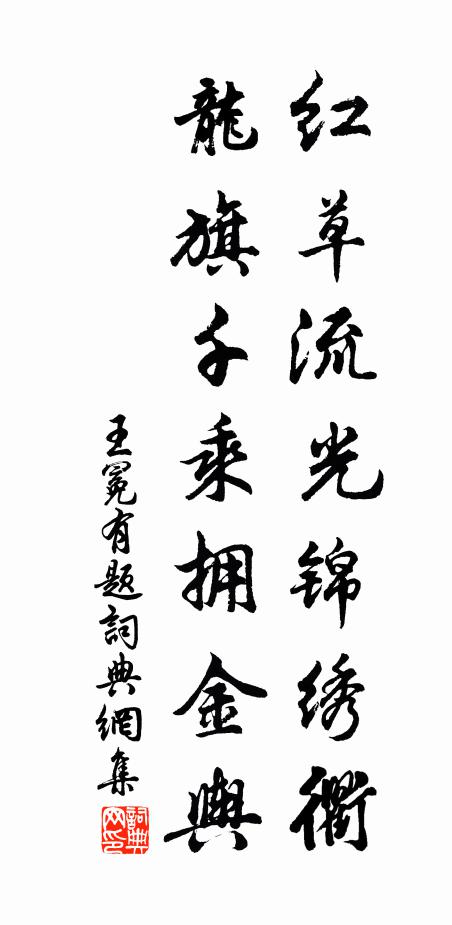 红草流光锦绣衢
龍旗千乘拥金舆
王冕有題詞典網集
詞典网印